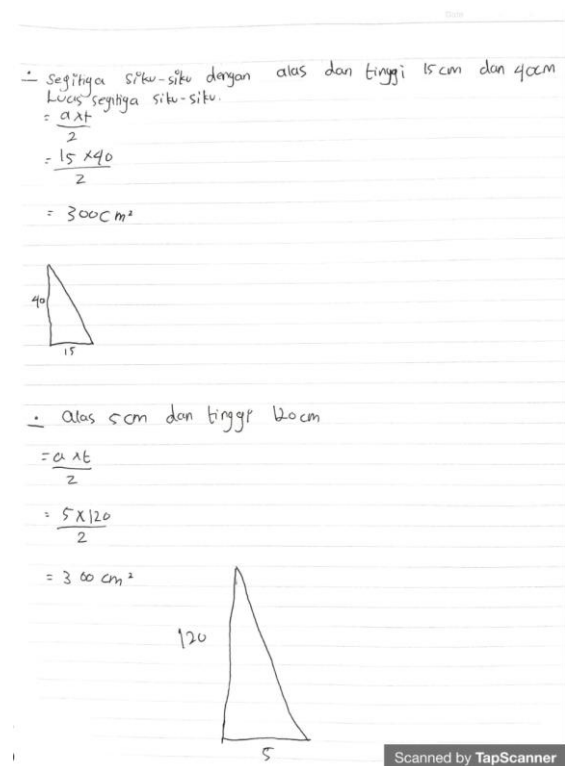 Date
÷ Segitiga siku-siku dengan alas dan tinggi 15 cm dan 40cm
Luas segitiga siku-siku.
= axt
2
= 15 x40
2
= 300cm²
40
15
÷ alas 5cm dan tinggi 120cm
= a xt
2
= 5x120
2
= 300 cm²
120
5
Scanned by TapScanner